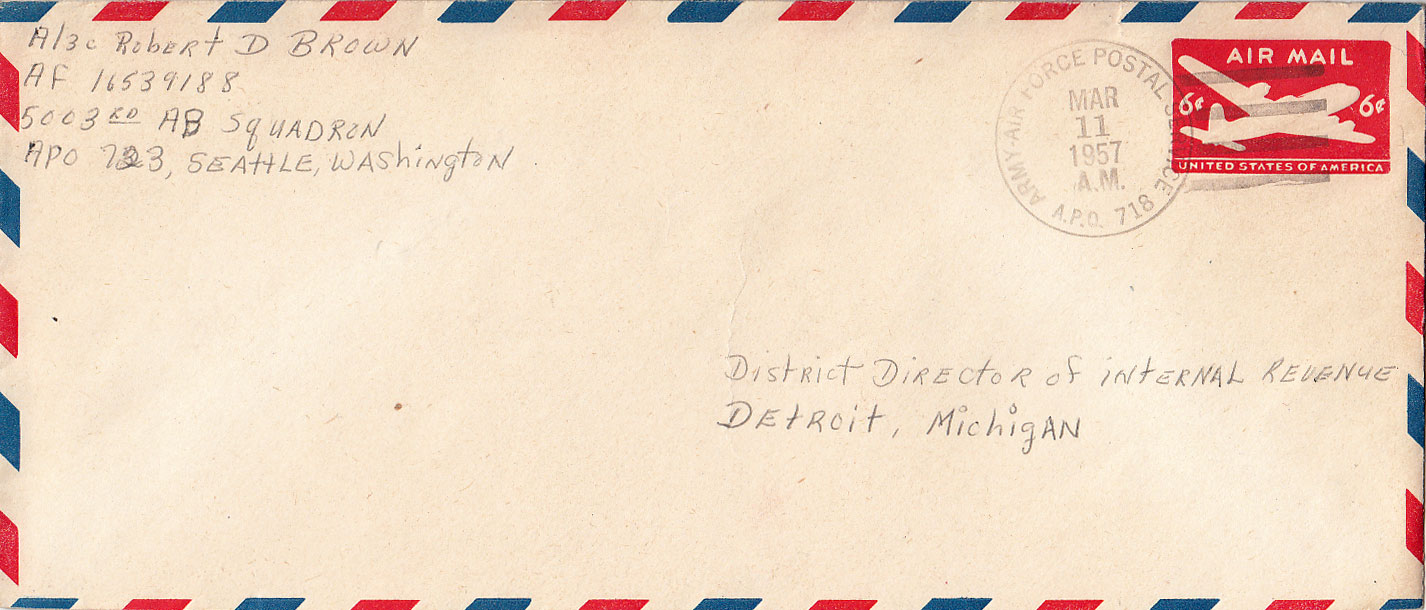 A/3c Robert D BROWN
AF 16539188
5003RD AB SQUADRON
APO 723, SEATTLE, WAShington
ARMY-AIR FORCE POSTAL SERVICE
MAR
11
1957
A.M.
A.P.O. 718
AIR MAIL
6¢ 6¢
UNITED STATES OF AMERICA
District DiREctoR of iNtERNAL REVENUE
DEtRoit, MichigAN